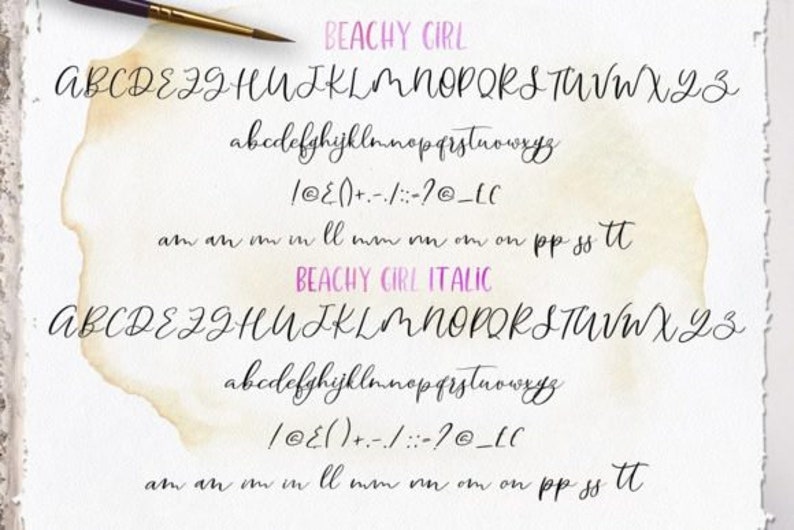 BEACHY GIRL
ABCDEFGHIJKLMNOPQRSTUVWXYZ
abcdefghijklmnopqrstuvwxyz
!@&()+.-,/:;=?©_[(
am an im in ll mm nn om on pp ss tt
BEACHY GIRL ITALIC
ABCDEFGHIJKLMNOPQRSTUVWXYZ
abcdefghijklmnopqrstuvwxyz
am an im in ll mm nn om on pp ss tt